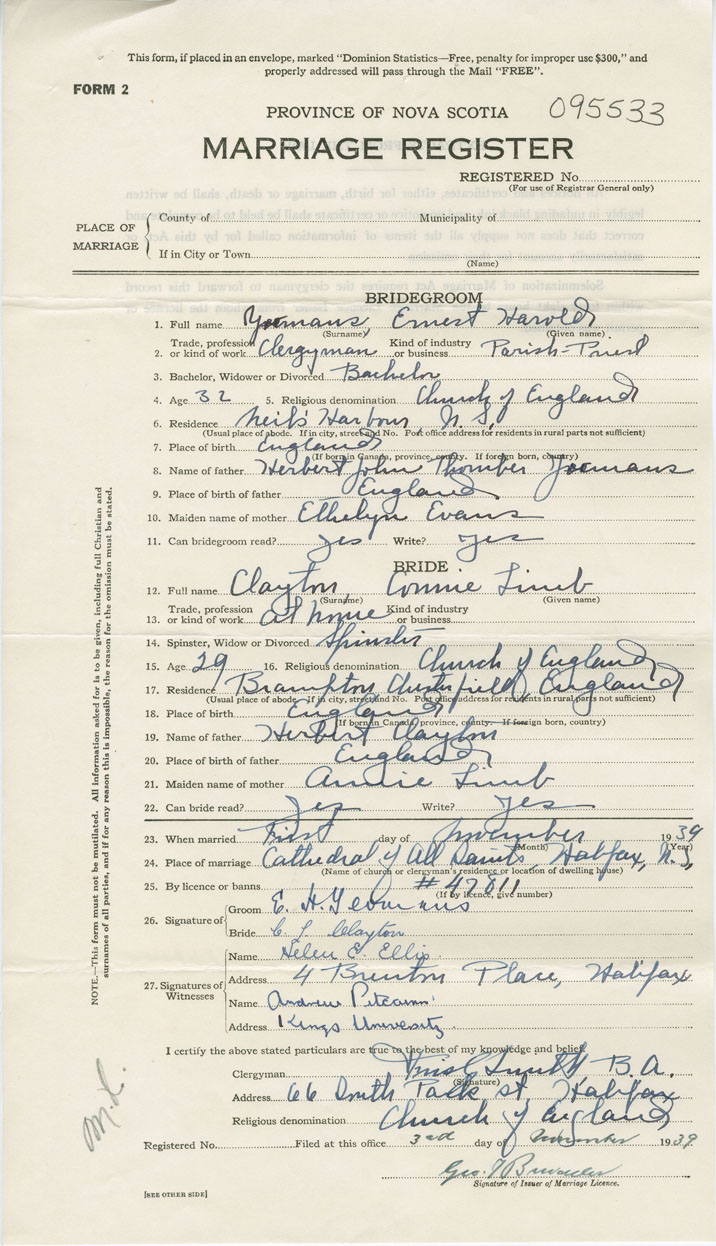 This form, if placed in an envelope, marked "Dominion Statistics—Free, penalty for improper use $300," and
properly addressed will pass through the Mail "FREE".
FORM 2
PROVINCE OF NOVA SCOTIA 095533
MARRIAGE REGISTER
REGISTERED No.
(For use of Registrar General only)
PLACE OF MARRIAGE
County of Municipality of
If in City or Town
(Name)
BRIDEGROOM
1. Full name Yeomans, Ernest Harold
(Surname) (Given name)
2. Trade, profession or kind of work Clergyman Kind of industry or business Parish-Priest
3. Bachelor, Widower or Divorced Bachelor
4. Age 32 5. Religious denomination Church of England
6. Residence Neil's Harbour N.S.
(Usual place of abode. If in city, street and No. Post office address for residents in rural parts not sufficient)
7. Place of birth England
(If born in Canada, province, county. If foreign born, country)
8. Name of father Herbert John Yeomans
9. Place of birth of father England
10. Maiden name of mother Ethelyn Evans
11. Can bridegroom read? Yes Write? Yes
BRIDE
12. Full name Clayton, Connie Limb
(Surname) (Given name)
13. Trade, profession or kind of work at home Kind of industry or business
14. Spinster, Widow or Divorced Spinster
15. Age 29 16. Religious denomination Church of England
17. Residence Brampton, Chesterfield, England
(Usual place of abode. If in city, street and No. Post office address for residents in rural parts not sufficient)
18. Place of birth England
(If born in Canada, province, county. If foreign born, country)
19. Name of father Herbert Clayton
20. Place of birth of father England
21. Maiden name of mother Annie Limb
22. Can bride read? Yes Write? Yes
23. When married First day of November 1939
(Month) (Year)
24. Place of marriage Cathedral of All Saints, Halifax, N.S.
(Name of church or clergyman's residence or location of dwelling house)
25. By licence or banns #47811
(If by licence, give number)
26. Signature of
Groom E. H. Yeomans
Bride C. L. Clayton
27. Signatures of Witnesses
Name Helen E. Ellis
Address 4 Brenton Place, Halifax
Name Andrew Pitcairn
Address Kings University
I certify the above stated particulars are true to the best of my knowledge and belief.
Clergyman Smith B.A.
(Signature)
Address 66 South Park St, Halifax
Religious denomination Church of England
Registered No. Filed at this office 3rd day of November 1939
Geo.
Signature of Issuer of Marriage Licence.
[SEE OTHER SIDE]
NOTE.—This form must not be mutilated. All information asked for is to be given, including full Christian and
surnames of all parties, and if for any reason this is impossible, the reason for the omission must be stated.